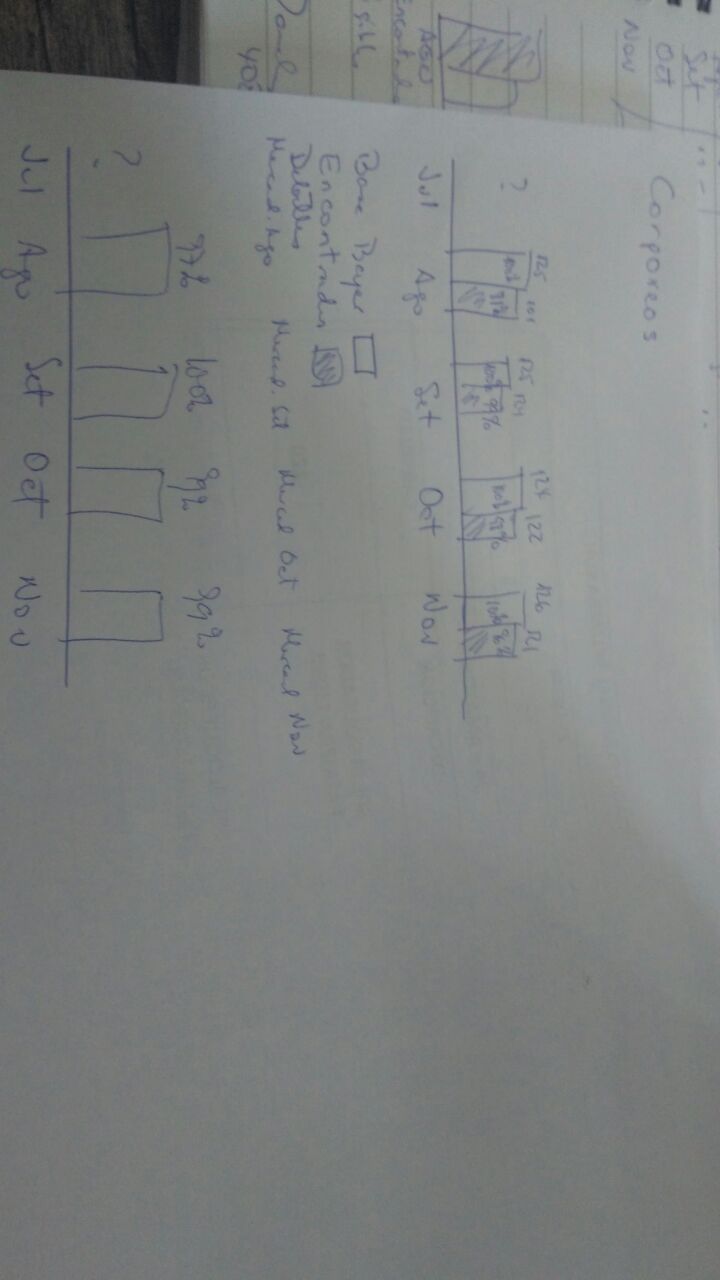 Set
Oct
Nov
Corporeos
?
125 101 125 124 124 122 126 121
100% 81% 100% 99% 100% 98% 100% 96%
Jul Ago Set Oct Nov
Base Bayer
Encontradas
Detalles
Mercad. Ago Mercad. Set Mercad Oct Mercad Nov
97% 100% 99% 99%
?
Jul Ago Set Oct Nov
AGO
408